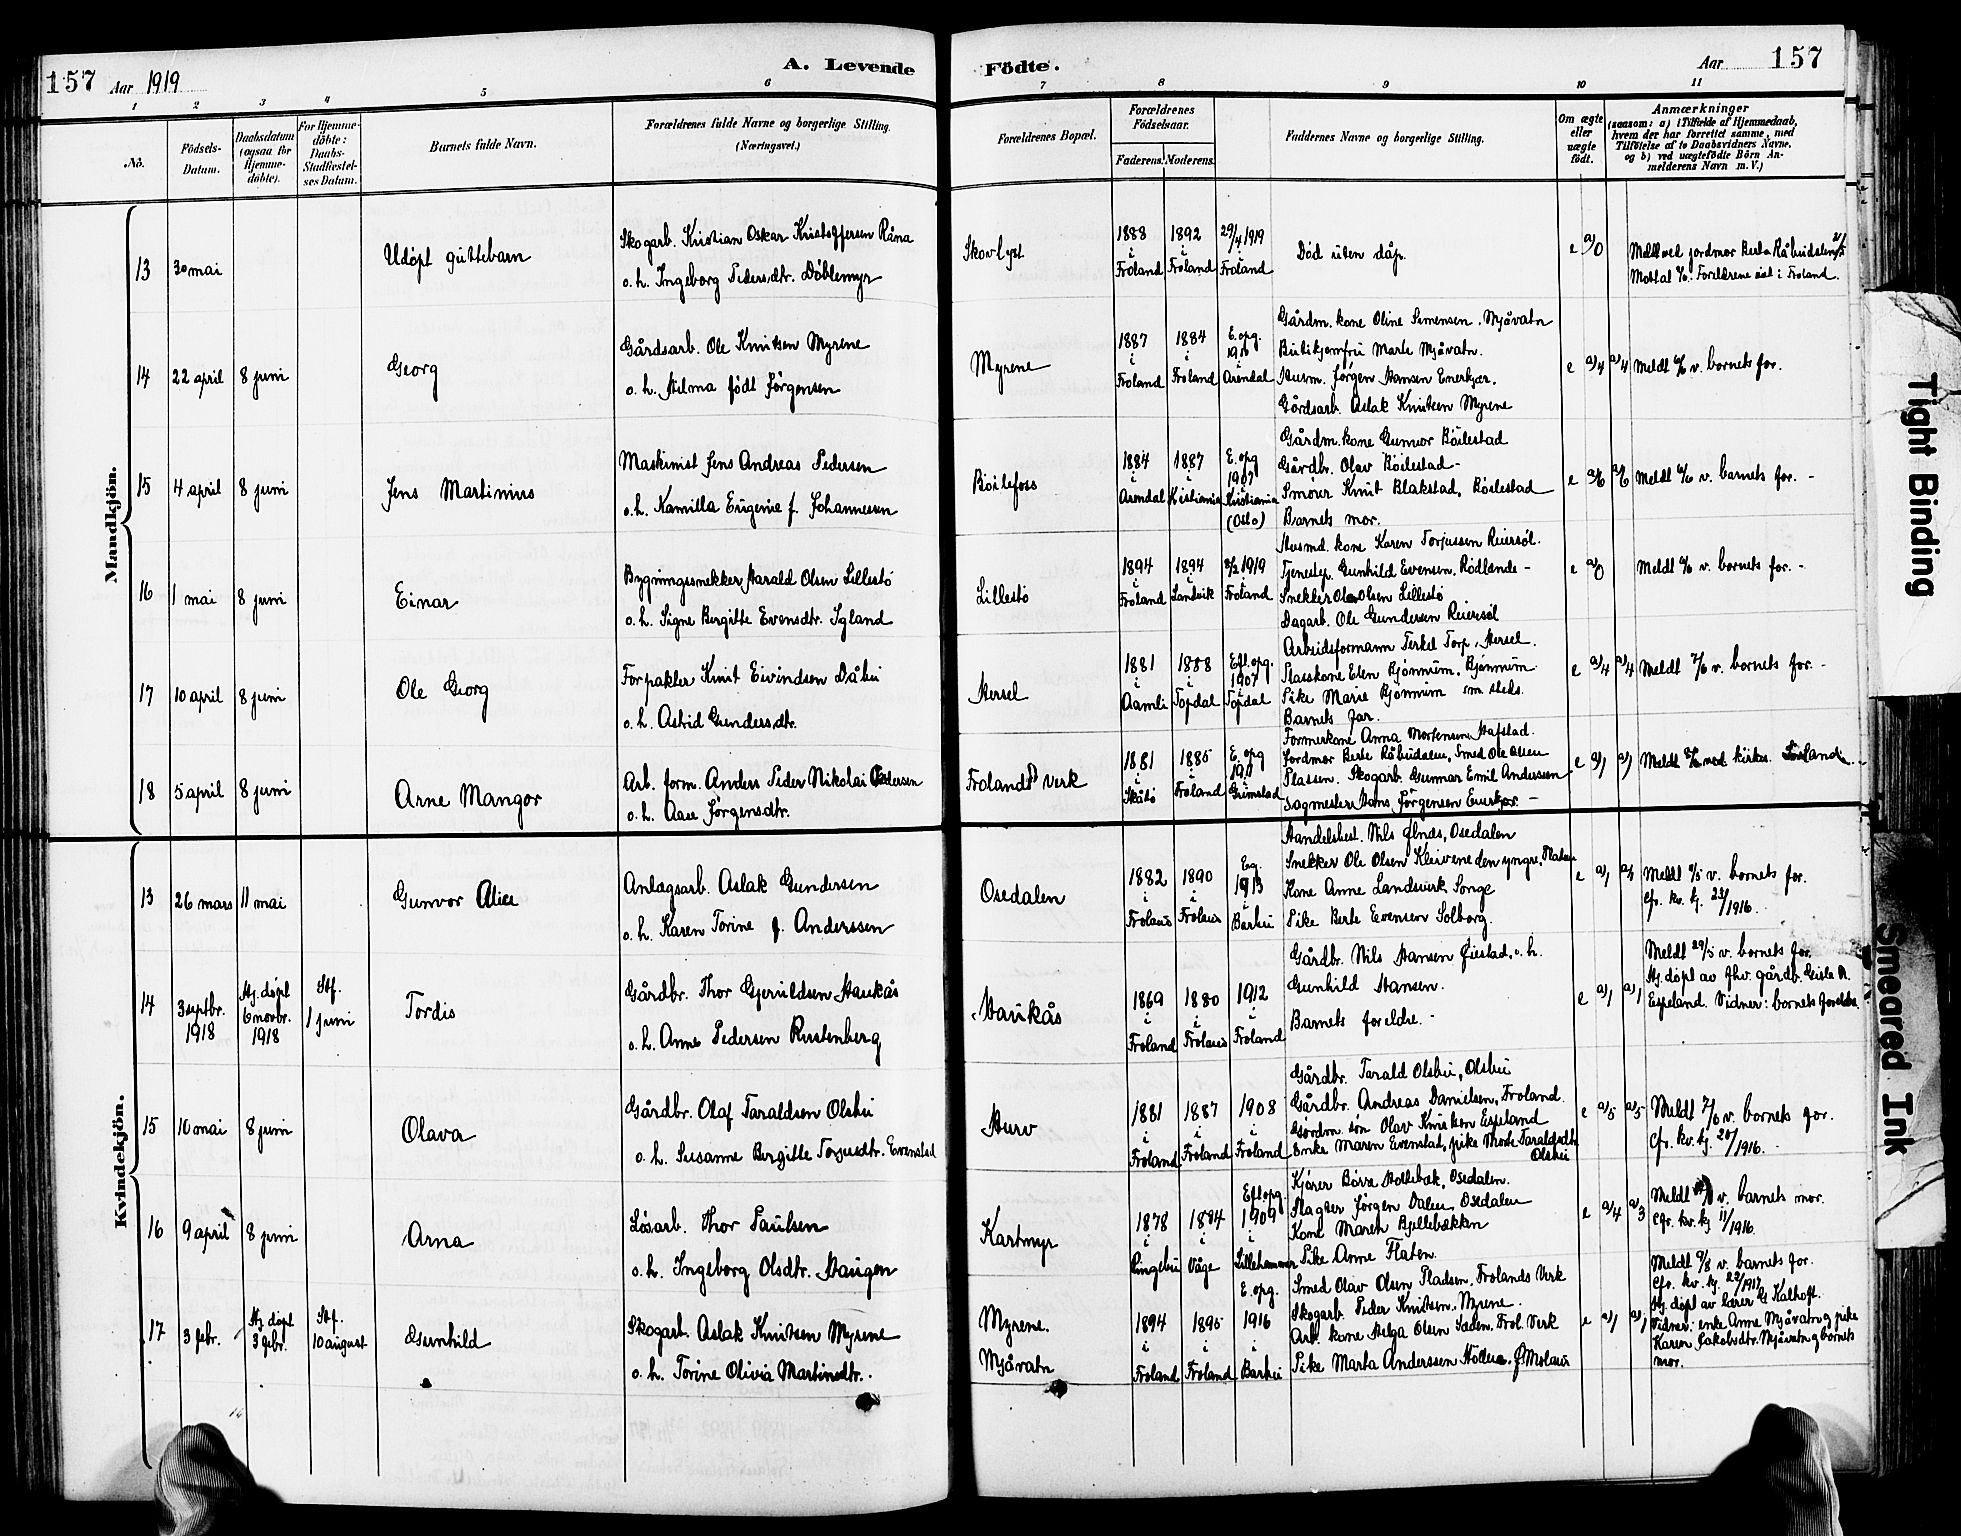 157 Aar 1919
A. Levende
Födte.
Aar 157
1 2 3 4 5 6 7 8 9 10 11
No.
Födsels-
Datum.
Daabsdatum
(ogsaa for
Hjemme-
döbte).
For Hjemme-
döbte:
Daabs-
Stadfæstel-
ses Datum.
Barnets fulde Navn.
Forældrenes fulde Navne og borgerlige Stilling.
(Næringsvei.)
Forældrenes Bopæl.
Forældrenes
Födselsaar.
Faderens. Moderens.
Faddernes Navne og borgerlige Stilling.
Om ægte
eller
uægte
født.
Anmærkninger
(saasom: a) i Tilfælde af Hjemmedaab,
hvem der har forrettet samme, med
Tilföielse af to Daabsvidners Navne,
og b) ved uægtefödte Börn An-
melderens Navn m. V.)
Mandkjön.
13 30 mai
Udöpt guttebarn
Skogarb. Kristian Oskar Kristoffersen Råna
o. h. Ingeborg Pedersdtr. Döblemyr
Skovlyst
1888 i Froland
1892 i Froland
29/4 1919 i Froland
Död uten dåp.
e a/0
14 22 april 8 juni
Georg
Gårdsarb. Ole Knutsen Myrene
o. h. Hilma födt Jörgensen
Myrene
1887 i Froland
1884 i Froland
E. opg. i Arendal
Gårdm. kone Oline Simensen. Mjåvatn
Butikjomfru Marte Mjåvatn.
Husm. Jörgen Hansen Enerkjær.
Gårdsarb. Aslak Knutsen Myrene
e a/4 a/4
Meldt v. barnets far.
15 4 april 8 juni
Jens Martinius
Maskinist Jens Andreas Pedersen
o. h. Kamilla Eugenie f. Johannessen
Böilefoss
1884 i Arendal
1887 i Kristiania
E. opg 1907 i Kristiania
(Oslo)
Gårdm. kone Gunvor Böilestad
Gårdbr. Olav Böilestad
Smörer Knut Blakstad, Böilestad
Barnets mor.
e a/6 a/6
Meldt v. barnets far.
16 1 mai 8 juni
Einar
Bygningssnekker Harald Olsen Lillestö
o. h. Signe Birgitte Evensdtr. Igland
Lillestö
1894 i Froland
1894 i Landvik
1919 i Froland
Husmd. kone Karen Torjussen Reiersöl.
Tjenestep. Gunhild Evensen, Rödlande
Snekker Ola Olsen Lillestö
Dagarb. Ole Gundersen Reiersöl
e a/0
Meldt v. barnets far.
17 10 april 8 juni
Ole Georg
Forpakter Knut Eivindsen Dåbu
o. h. Astrid Gundersdtr.
Hersel
1881 i Aamli
1888 i Topdal
Eft. opg. 1907 i Topdal
Arbeidsformann Terkel Torp, Hersel.
Plasskone Elen Bjönnum, Bjönnum
Pike Marie Bjönnum sm steds.
Barnets far.
e a/4 a/4
Meldt 7/6 v. barnets far.
18 5 april 8 juni
Arne Mangor
Arb. form. Anders Peder Nikolai Pedersen
o. h. Aase Jörgensdtr.
Frolands verk
1881 i Skåtö
1885 i Froland
E. opg 1911 i Grimstad
Formerkone Anna Mortensen Hafstad.
Jordmor Berte Råbudalen, Smed Ole Olsen
Plassen. Skogarb. Gunnar Emil Anderssen
Sagmester Hans Jörgensen Enerkjær.
e a/1 a/1
Kvindekjön.
13 26 mars 11 mai
Gunvor Alice
Anlægsarb. Aslak Gundersen
o. h. Karen Torine f. Anderssen
Osedalen
1882 i Froland
1890 i Froland
Eg. 1913 i Barbu
Handelsbest. Nils Ölnes, Osedalen
Snekker Ole Olsen Kleivene den yngre, Flaten
Kone Anne Landsverk Songe
Pike Berte Evensen Solborg.
e a/1
Meldt v. barnets far.
Cfr. kv. kj. 23/1916.
14 3 septbr. 1918
Hj. döpt 6 novbr. 1918
Stf. 1 juni
Tordis
Gårdbr. Thor Gjeruldsen Haukås
o. h. Anne Pedersen Rustenberg
Haukås
1869 i Froland
1880 i Froland
1912 i Froland
Gårdbr. Nils Hansen Öiestad, o. h.
Gunhild Hansen.
Barnets foreldre.
e a/1 a/1
Meldt 29/5 v. barnets far.
Hj. döpt av fhv. gårdbr. Gisle A.
Espeland. Vidner: barnets foreldre.
15 10 mai 8 juni
Olava
Gårdbr. Olaf Taraldsen Olsbu
o. h. Susanne Birgitte Torjusdtr. Evenstad
Hurv
1881 i Froland
1887 i Froland
1908 i Froland
Gårdbr. Tarald Olsbu, Olsbu
Gårdbr. Andreas Danielsen, Froland.
Gårdm. sön Olav Knutsen Espeland
Enke Maren Evenstad, pike Marte Taraldsdtr. Olsbu
e a/5 a/5
Meldt 7/6 v. barnets far.
Cfr. kv. kj. 20/1916.
16 9 april 8 juni
Arna
Lösarb. Thor Paulsen
o. h. Ingeborg Olsdtr. Haugen
Kartmyr
1878 i Ringebu
1884 i Våge
Eft. opg. 1909 i Lillehammer
Kjörer Börre Holtebæk, Osedalen.
Slagter Jörgen Dalen Osedalen
Kone Maren Bjellebækken
Pike Anne Flaten.
e a/4 a/3
Meldt v. barnets mor.
Cfr. kv. kj 11/1916.
17 3 febr.
Hj. döpt 3 febr.
Stf. 10 august
Gunhild
Skogarb. Aslak Knutsen Myrene
o. h. Torine Olivia Martinsdtr.
Myrene.
Mjåvatn
1894 i Froland
1895 i Froland
E. opg. 1916 i Barbu
Smed Olav Olsen Pladsen, Frolands Verk
Skogarb. Peder Knutsen, Myrene.
Arb. kone Helga Olsen Saden. Frol. Verk
Pike Marta Anderssen
e a/1 a/1
Meldt 9/8 v. barnets far.
Cfr. kv. kj. 22/1917
Hj. döpt av lærer G Kalhoft.
Vidner: enke Anne Mjåvatn og pike
Karen Jakobsdtr. Mjåvatn og barnets
mor.
Tight Binding
Smeared Ink